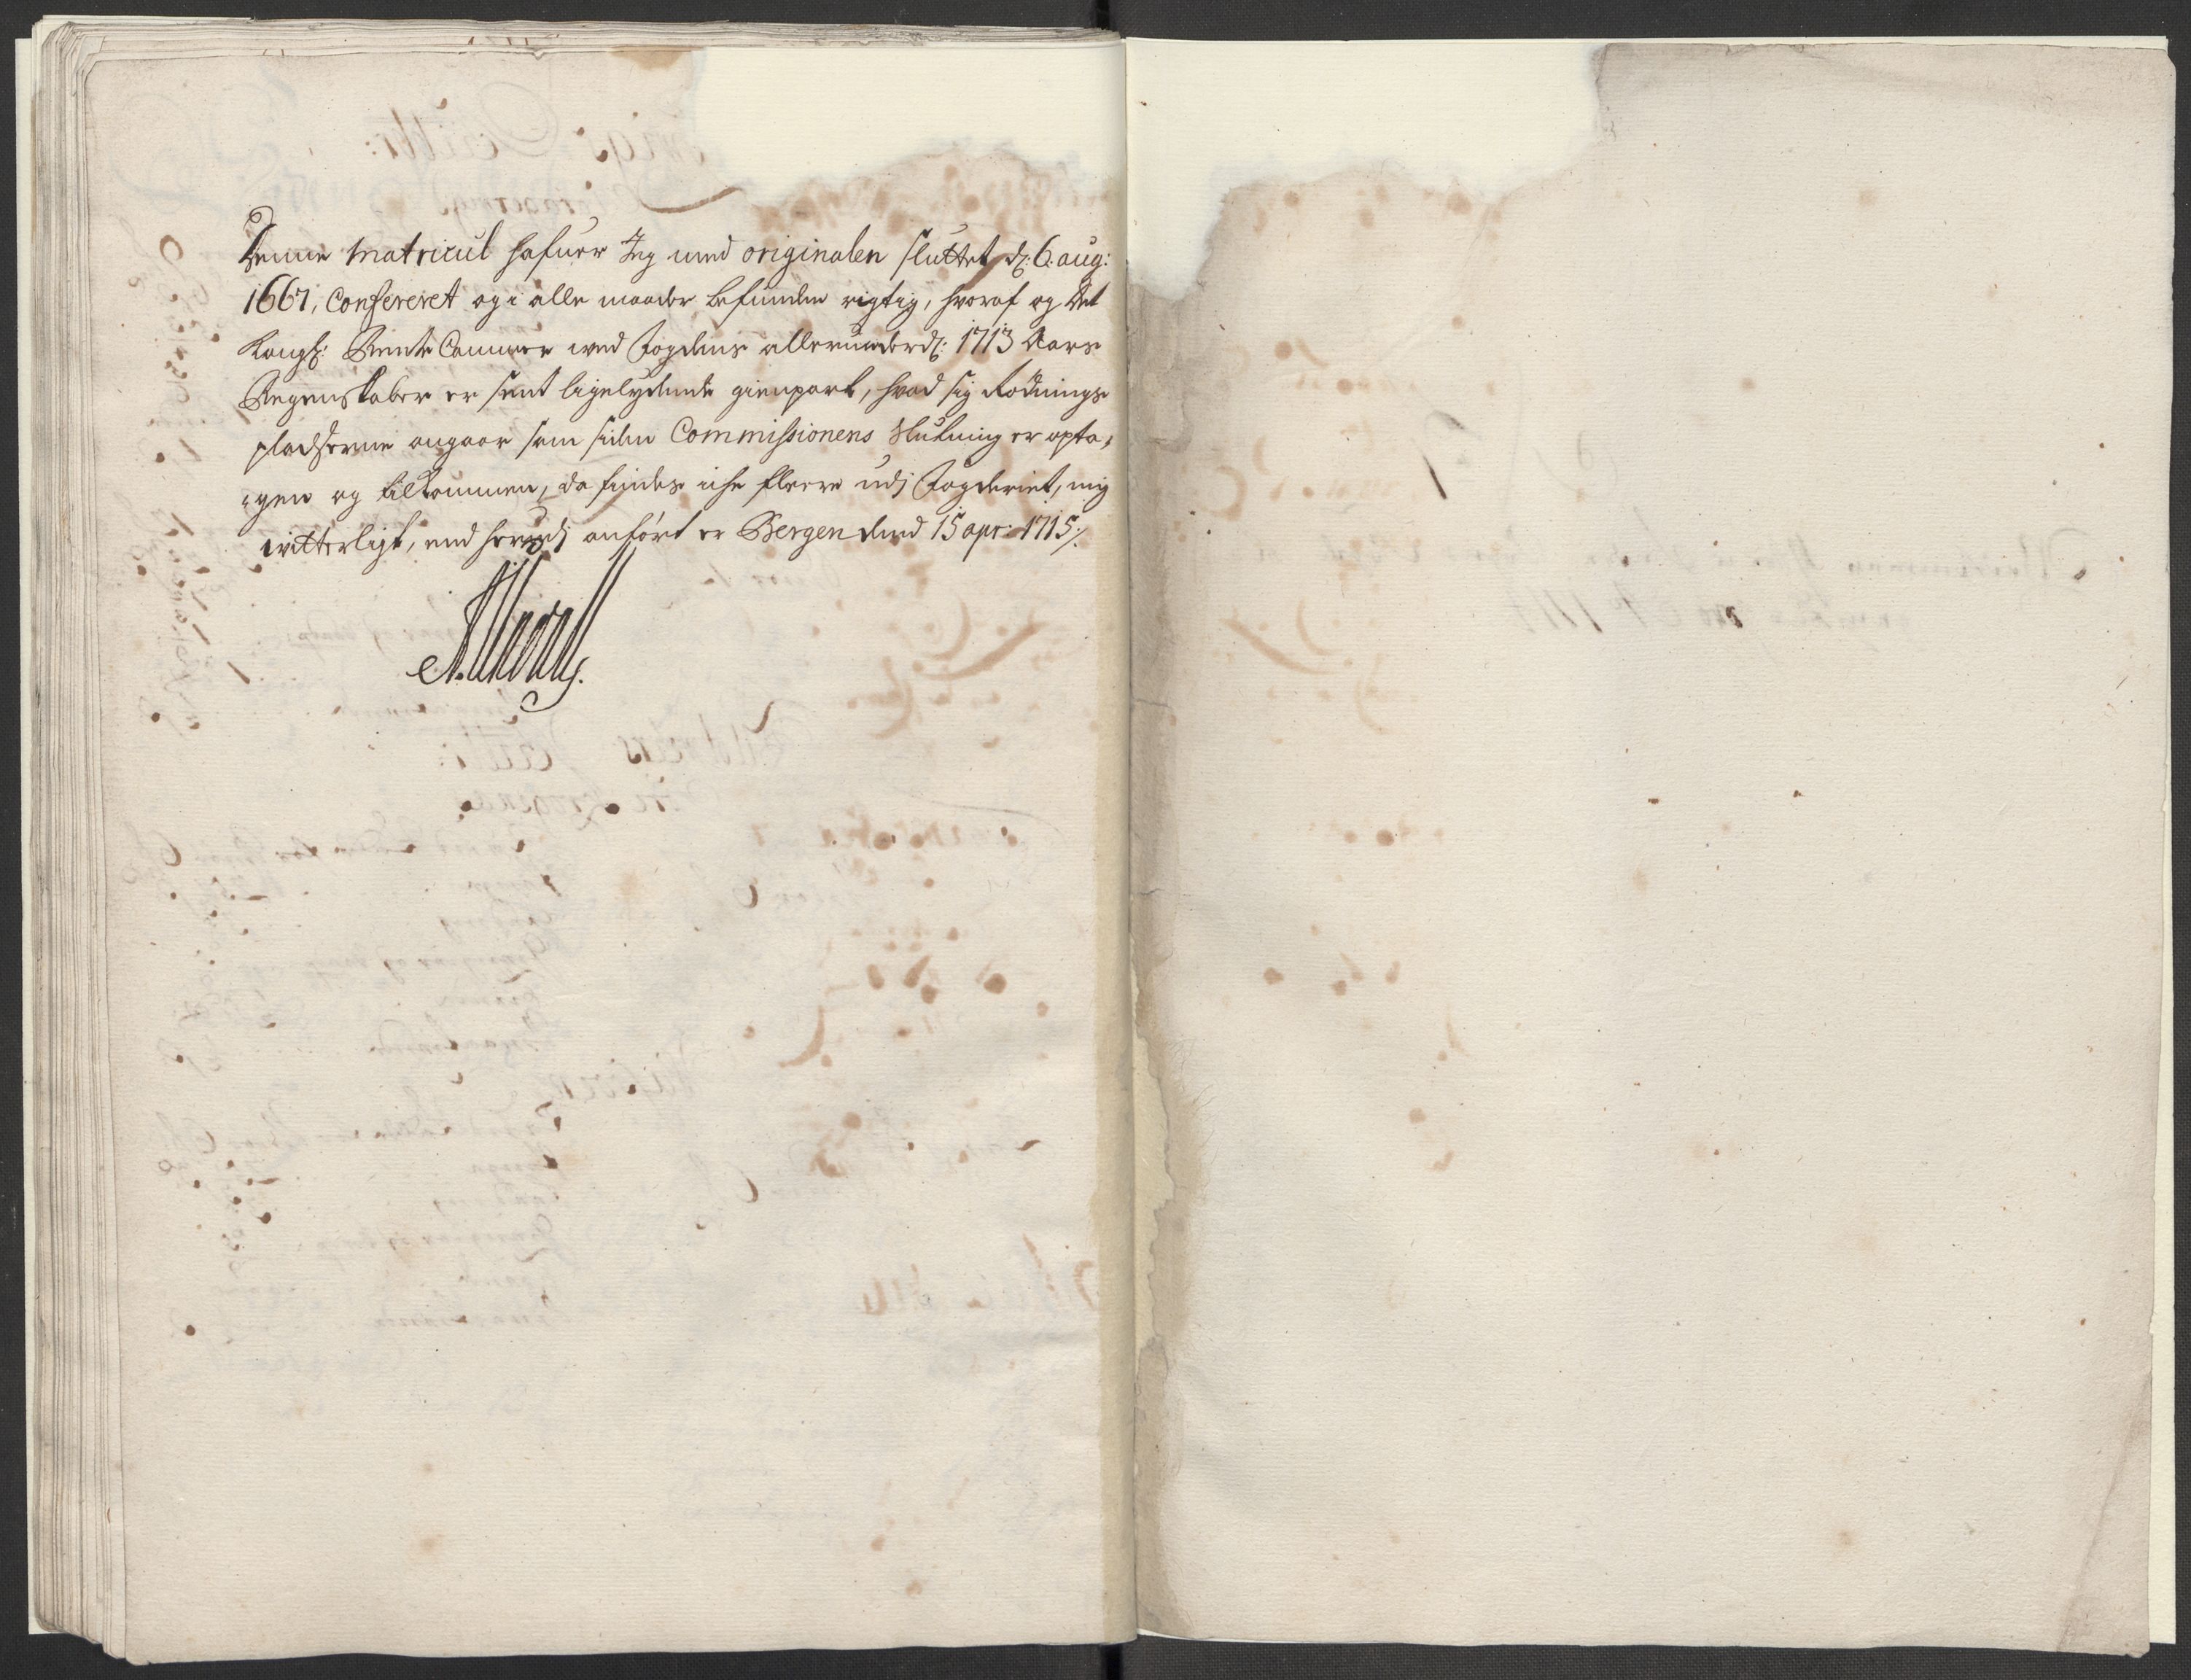 Denne Matricul hafuer Jeg med originalen sluttet d: 6. aug:
1667, Confereret og i alle maader befunden rigtig, hvoraf og det
Kongl: Rente Cammer med Fogdens allerunderd: 1713 Aars
Regenskaber er sent ligelydende gienpart, hvad sig Rødnings
pladserne angaar som siden Commissionens Slutning er opta-
gen og tilkommen, da findes iche fleere udj Fogderiet, mig
witterligt, end herudj anført er Bergen dend 15 apr: 1715 /.